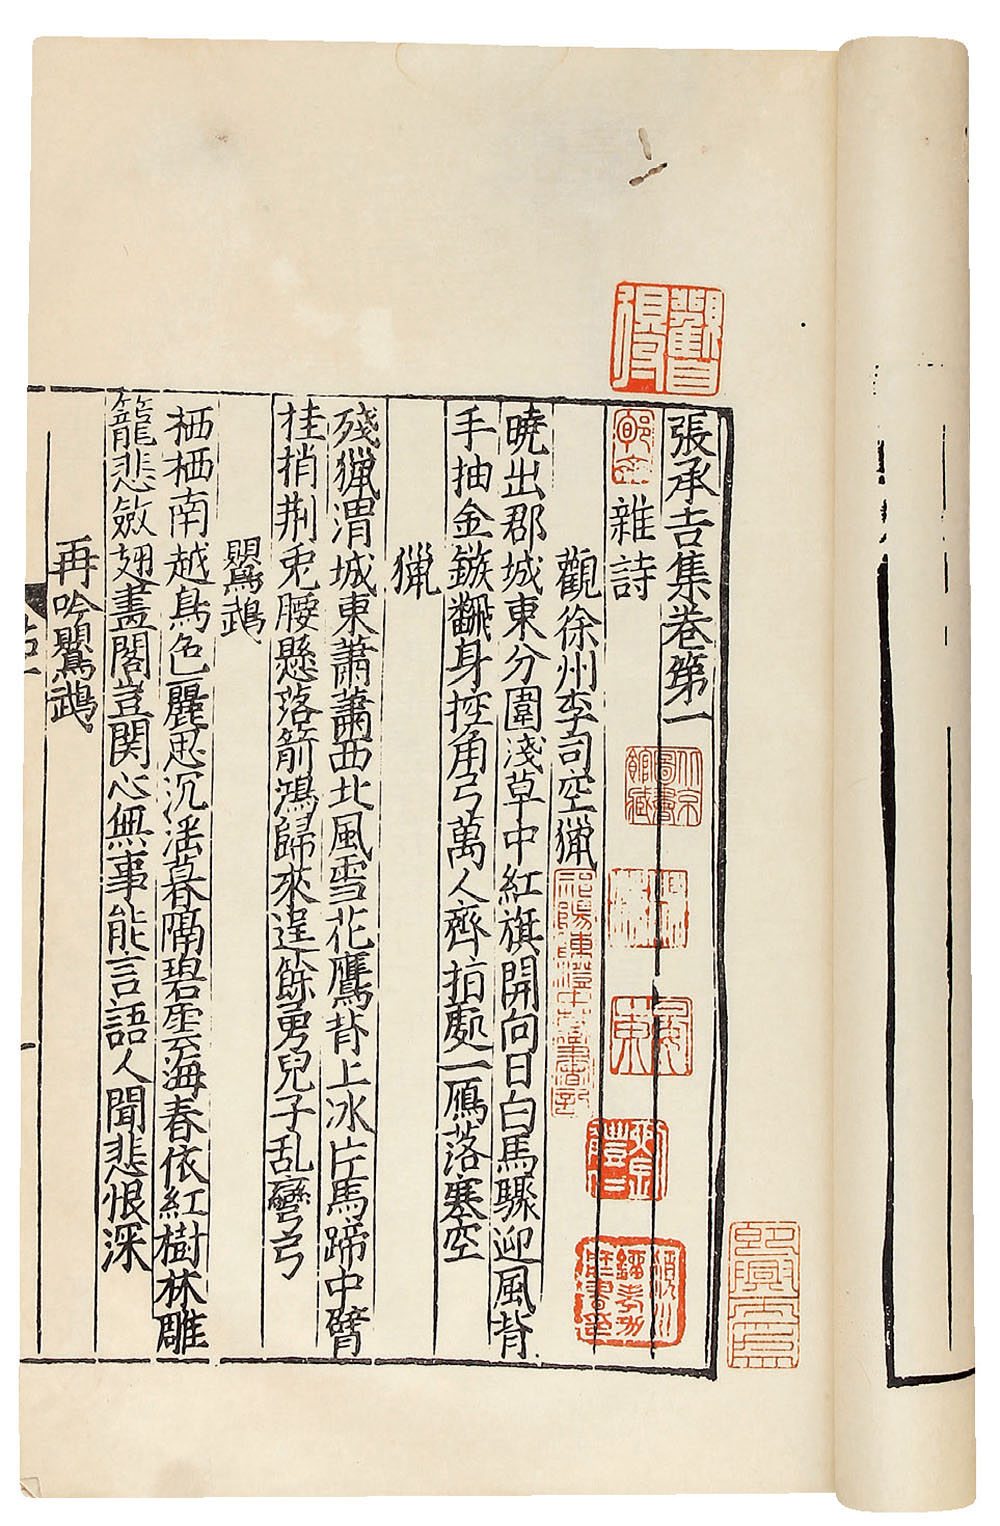 張承吉集卷第一
雜詩
觀徐州李司空獵
曉出郡城東分圍淺草中紅旗開向日白馬驟迎風背
手抽金鏃飜身控角弓萬人齊指處一鴈落寒空
獵
殘獵渭城東蕭蕭西北風雪花鷹背上冰片馬蹄中臂
挂捎荆兎腰懸落箭鴻歸來逞餘勇兒子乱彎弓
鸚鵡
栖栖南越鳥色麗思沉滛暮隔碧雲海春依紅樹林雕
籠悲斂翅畫閣豈関心無事能言語人聞悲恨深
再吟鸚鵡
北京圖書館藏
祁陽陳澄中藏書記
劉體仁
潁川鎦考功藏書印